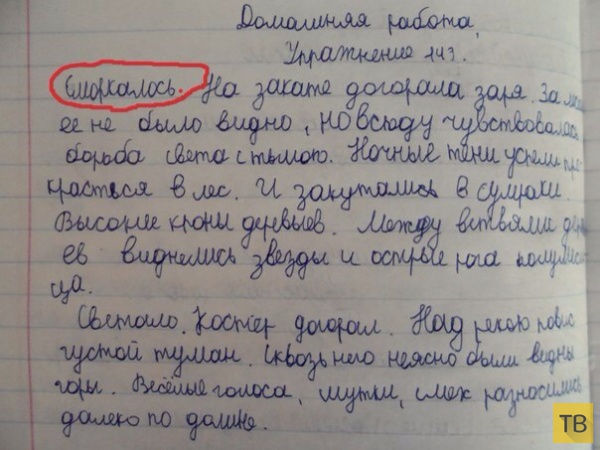 Домашняя работа,
Упражнение 143.
Сморкалось. На закате догорала заря. За
ее не было видно, но всюду чувствовалась
борьба света с тьмою. Ночные тени успели про
красться в лес. И закутались в сумраки.
Высокие кроны деревьев. Между ветвями дере
ев виднелись звезды и острые рога полумеся
ца.
Светало. Костёр догорал. Над рекою повис
густой туман. Сквозь него неясно были видны
горы. Весёлые голоса, шутки, смех разносились
далеко по долине.
ТВ